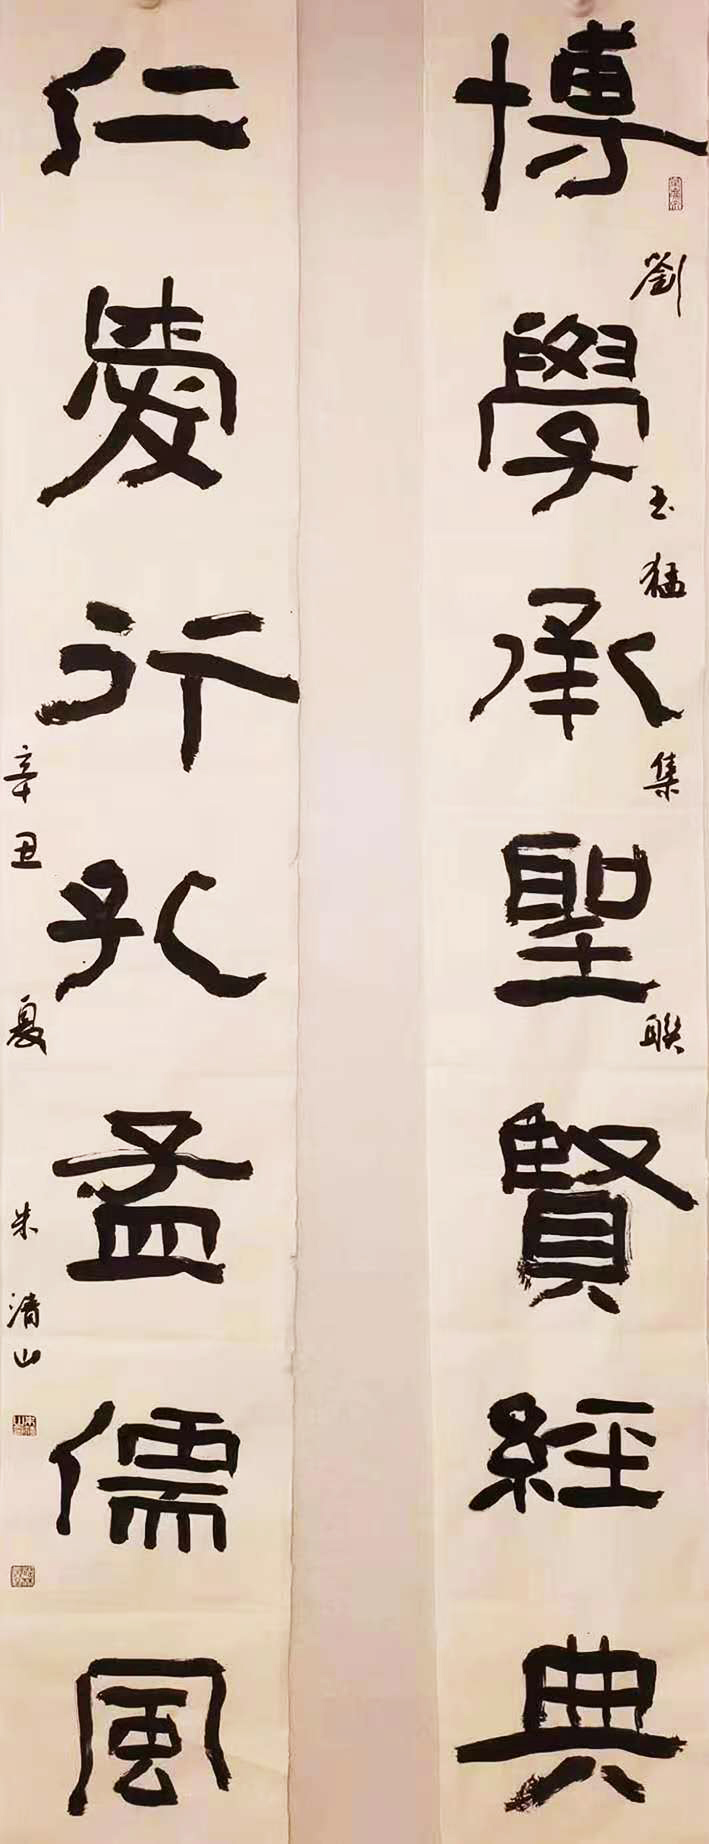 博學承聖賢經典
劉玉猛集聯
仁愛行孔孟儒風
辛丑夏朱清山